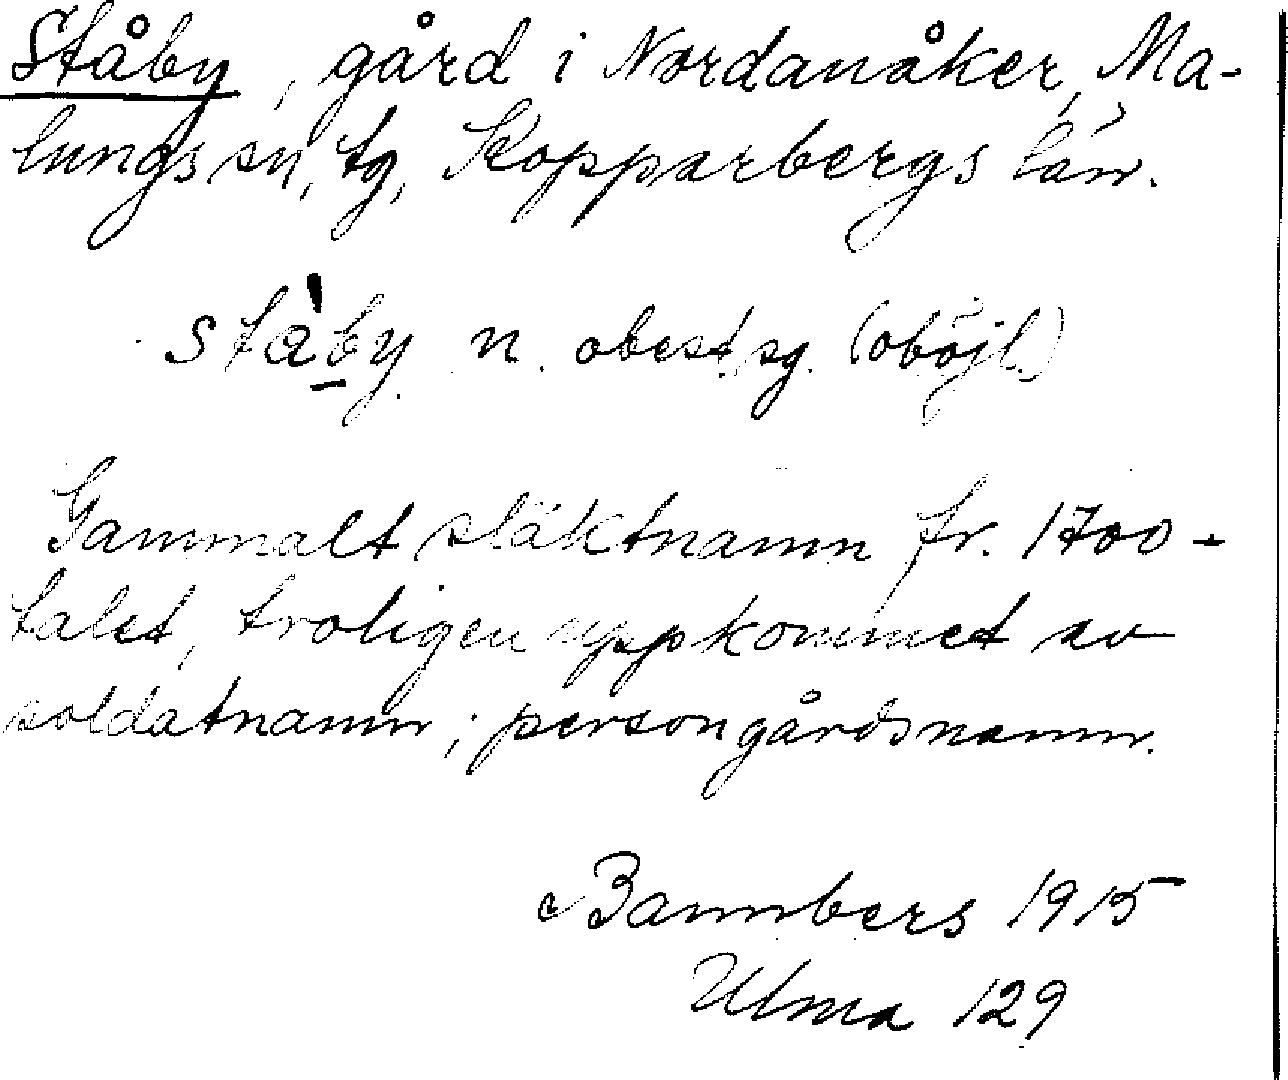 Ståby, gård i Nordanåker, Ma-
lungs sn, tg, Kopparbergs län.
stà'by n. obest. sg. (oböjl.)
Gammalt släktnamn fr. 1700-
talet, troligen uppkommet av
soldatnamn; persongårdsnamn.
Bannbers 1915
Ulma 129